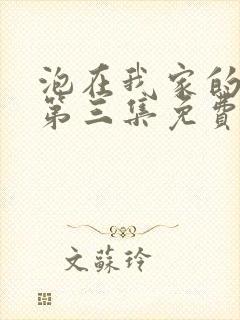 泡在我家的
第三集免費
文蘇玲